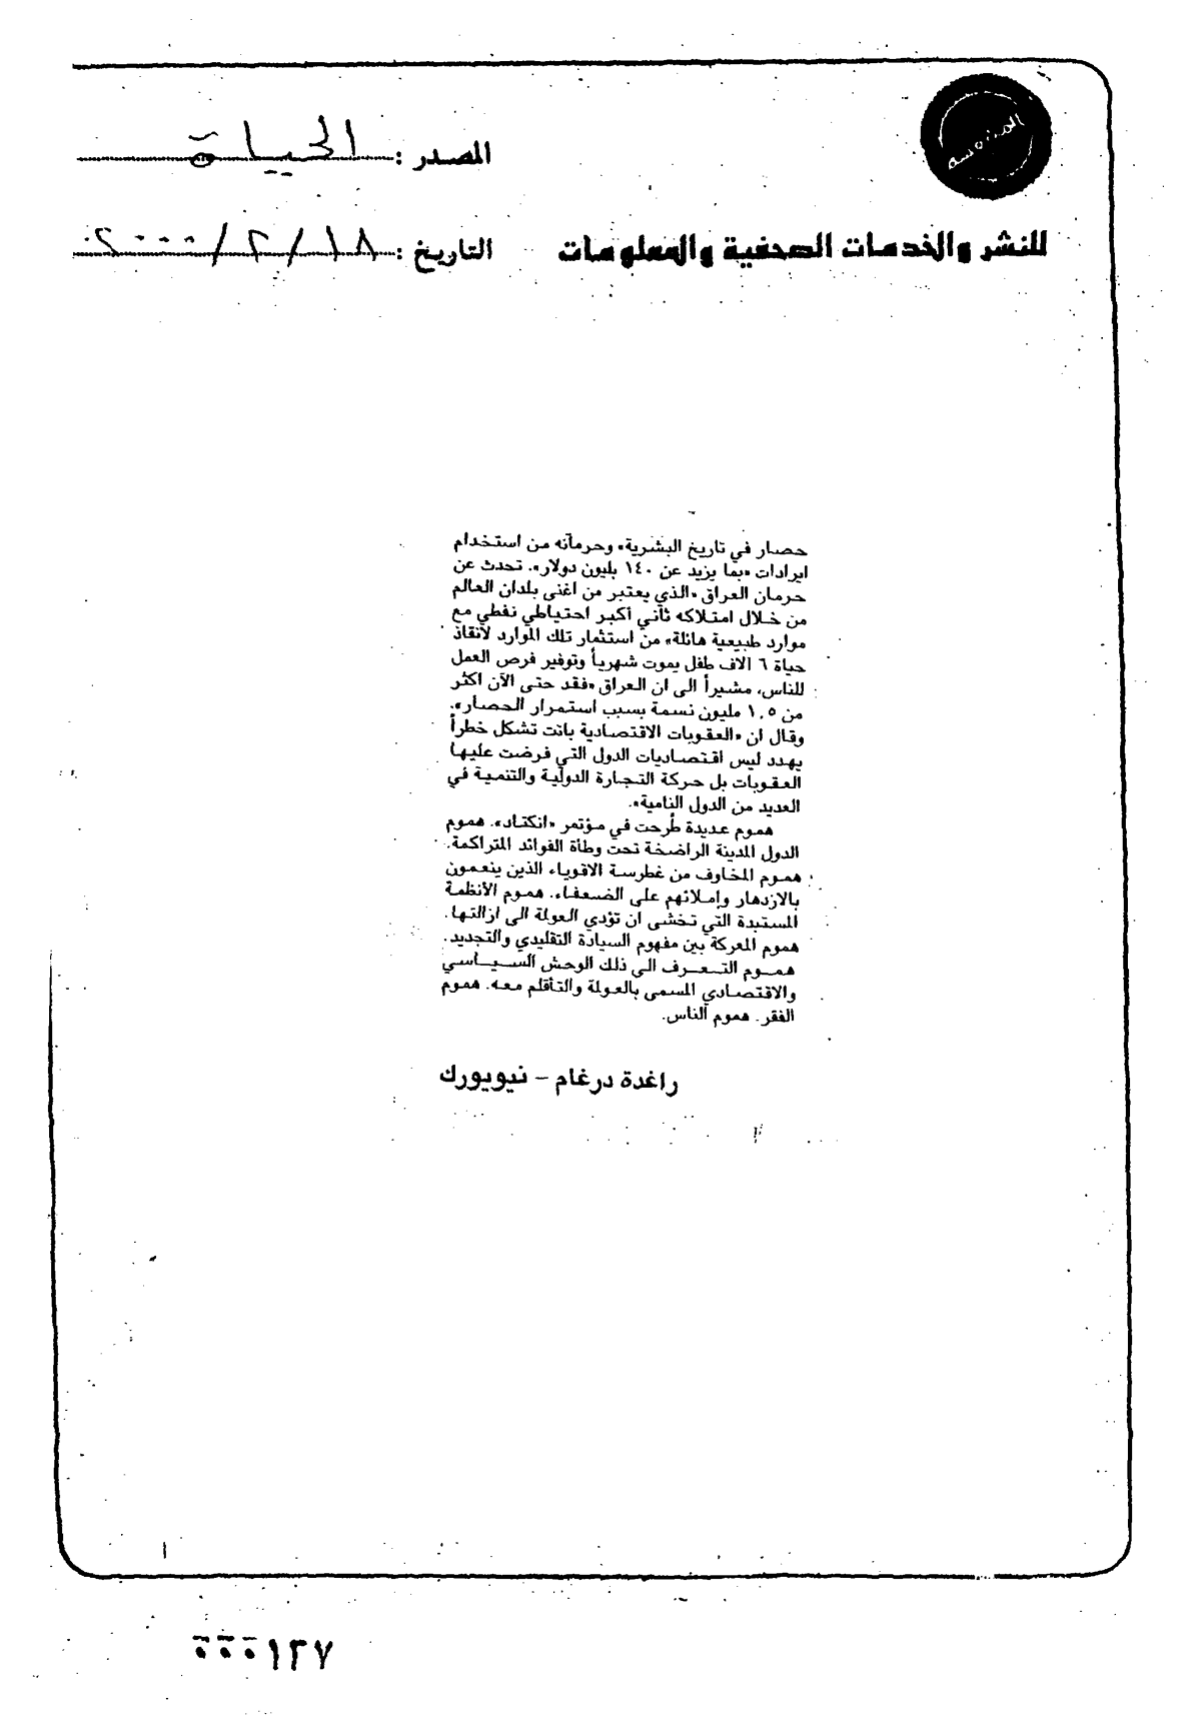 المحروسة
المصدر : الحياة
للنشر والخدمات الصحفية والمعلومات
التاريخ : ١٨/٢/٢٠٠٠
حصار في تاريخ البشرية» وحرمانه من استخدام
ايرادات «بما يزيد عن ١٤٠ بليون دولار». تحدث عن
حرمان العراق «الذي يعتبر من اغنى بلدان العالم
من خلال امتلاكه ثاني أكبر احتياطي نفطي مع
موارد طبيعية هائلة» من استثمار تلك الموارد لانقاذ
حياة ٦ الاف طفل يموت شهرياً وتوفير فرص العمل
للناس، مشيراً الى ان العراق «فقد حتى الآن اكثر
من ١,٥ مليون نسمة بسبب استمرار الحصار».
وقال ان «العقوبات الاقتصادية باتت تشكل خطراً
يهدد ليس اقتصاديات الدول التي فرضت عليها
العقوبات بل حركة التجارة الدولية والتنمية في
العديد من الدول النامية».
هموم عديدة طُرحت في مؤتمر «انكتاد». هموم
الدول المدينة الراضخة تحت وطأة الفوائد المتراكمة.
هموم المخاوف من غطرسة الاقوياء الذين ينعمون
بالازدهار وإملائهم على الضعفاء. هموم الأنظمة
المستبدة التي تخشى ان تؤدي العولة الى ازالتها.
هموم المعركة بين مفهوم السيادة التقليدي والتجديد.
هموم التعرف الى ذلك الوحش السياسي
والاقتصادي المسمى بالعولة والتأقلم معه. هموم
الفقر. هموم الناس.
راغدة درغام - نيويورك